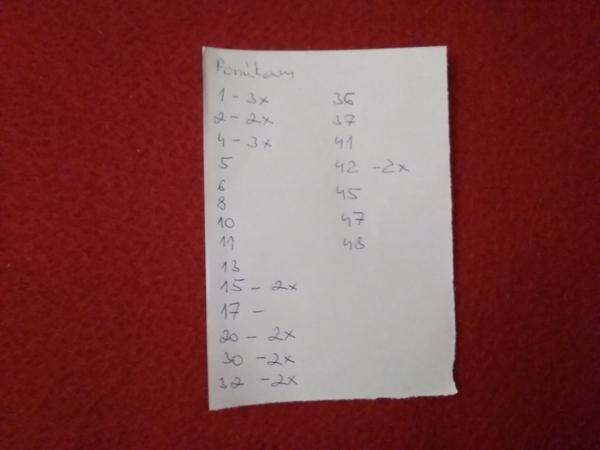 Ponúkam
1 - 3x
2 - 2x
4 - 3x
5
6
8
10
11
13
15 - 2x
17 -
20 - 2x
30 - 2x
32 - 2x
36
37
41
42 - 2x
45
47
48